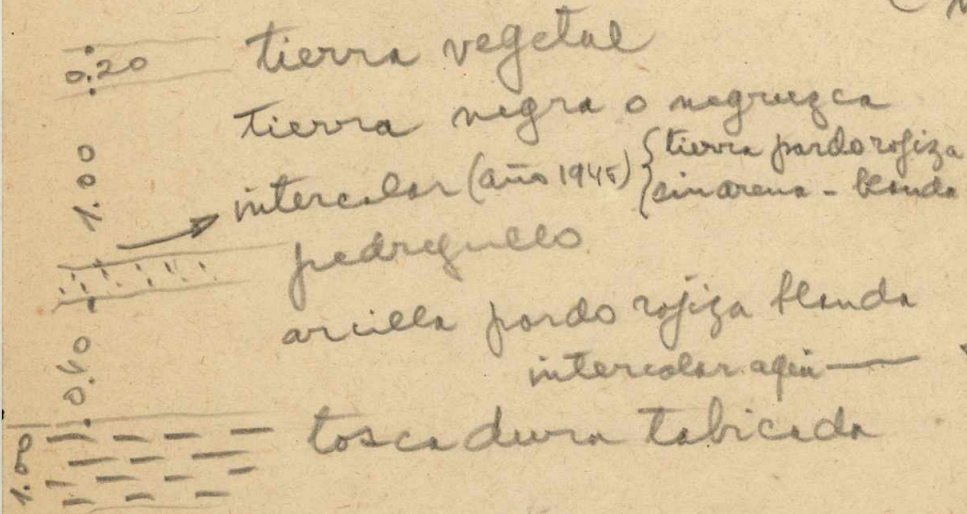 0.20 tierra vegetal
tierra negra o negruzca
1.00
intercalar (año 1945) { tierra pardo rojiza
sin arena - blanda
pedregullo
arcilla pardo rojiza blanda
0.40
intercalar aquí —
tosca dura tabicada